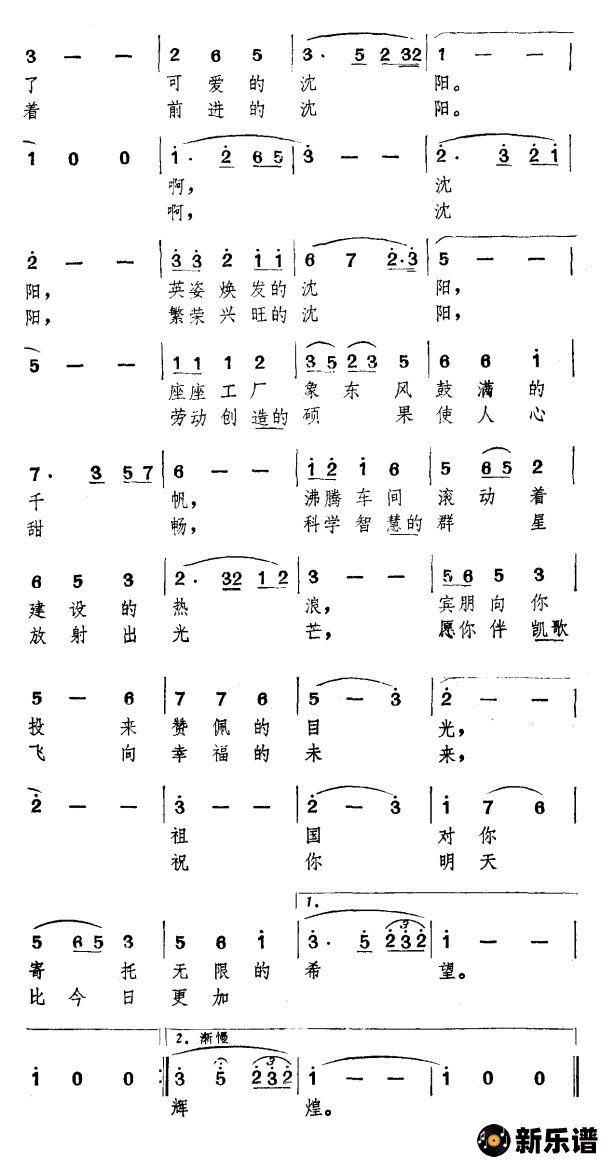 3 — — | 2 6 5 | 3· 5 2 32 | 1 — — |
了 可爱的沈 阳。
着 前进的沈 阳。
1 0 0 | 1· 2 6 5 | 3 — — | 2· 3 2 1 |
啊， 沈
啊， 沈
2 — — | 3 3 2 1 1 | 6 7 2·3 | 5 — — |
阳， 英姿焕发的沈 阳，
阳， 繁荣兴旺的沈 阳，
5 — — | 1 1 1 2 | 3 5 2 3 5 | 6 6 1 |
座座工厂 象东风 鼓满的
劳动创造的硕 果 使人心
7· 3 5 7 | 6 — — | 1 2 1 6 | 5 6 5 2 |
千 帆， 沸腾车间 滚动着
甜 畅， 科学智慧的群 星
6 5 3 | 2· 32 1 2 | 3 — — | 5 6 5 3 |
建设的热 浪， 宾朋向你
放射出光 芒， 愿你伴凯歌
5 — 6 | 7 7 6 | 5 — 3 | 2 — — |
投 来 赞佩的目 光，
飞 向 幸福的未 来，
2 — — | 3 — — | 2 — 3 | 1 7 6 |
祖 国 对你
祝 你 明天
1.
5 6 5 3 | 5 6 1 | 3· 5 2 3 2 | 1 — — |
寄 托 无限的希 望。
比今日 更加
2. 渐慢
1 0 0 :| 3 5 2 3 2 | 1 — — | 1 0 0 ‖
辉 煌。
新乐谱